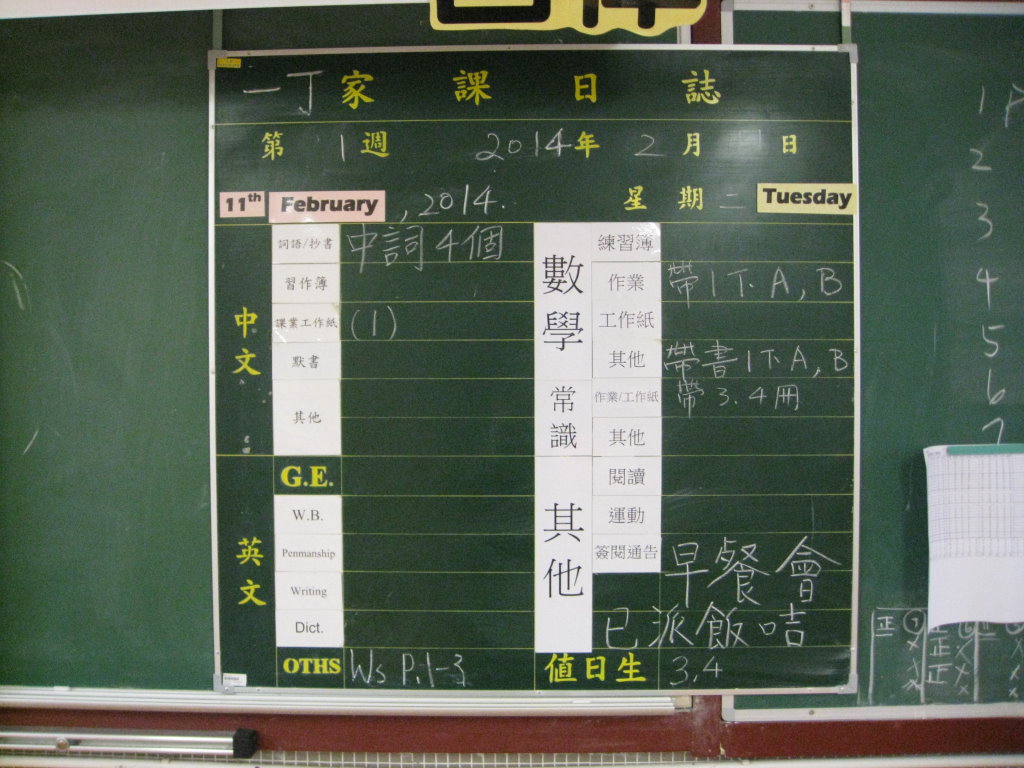 一丁家課日誌
第 1 週 2014年 2 月 11 日
11th February , 2014. 星期二 Tuesday
中文
詞語/抄書 中詞4個
習作簿
課業工作紙 (1)
默書
其他
英文
G.E.
W.B.
Penmanship
Writing
Dict.
OTHS Ws P.1-3
數學
練習簿
作業 帶1下A,B
工作紙
其他 帶書1下A,B
常識
作業/工作紙 帶3.4冊
其他
其他
閱讀
運動
簽閱通告 早餐會
已派飯咭
值日生 3,4
1
2
3
4
5
6
7
正
正
正